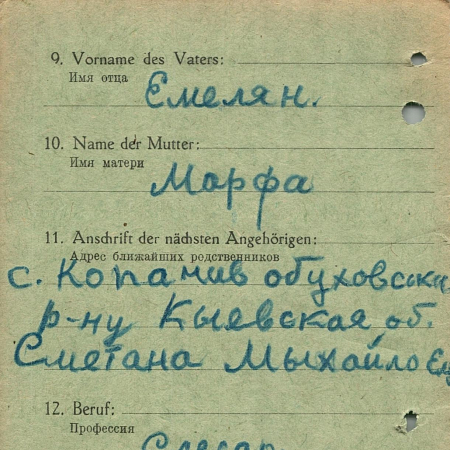 9. Vorname des Vaters:
Имя отца
Емелян.
10. Name der Mutter:
Имя матери
Марфа
11. Anschrift der nächsten Angehörigen:
Адрес ближайших редственников
с. Копачив обуховски
р-ну Кыевская об.
Сметана Мыхайло Ем
12. Beruf:
Профессия
Слесар